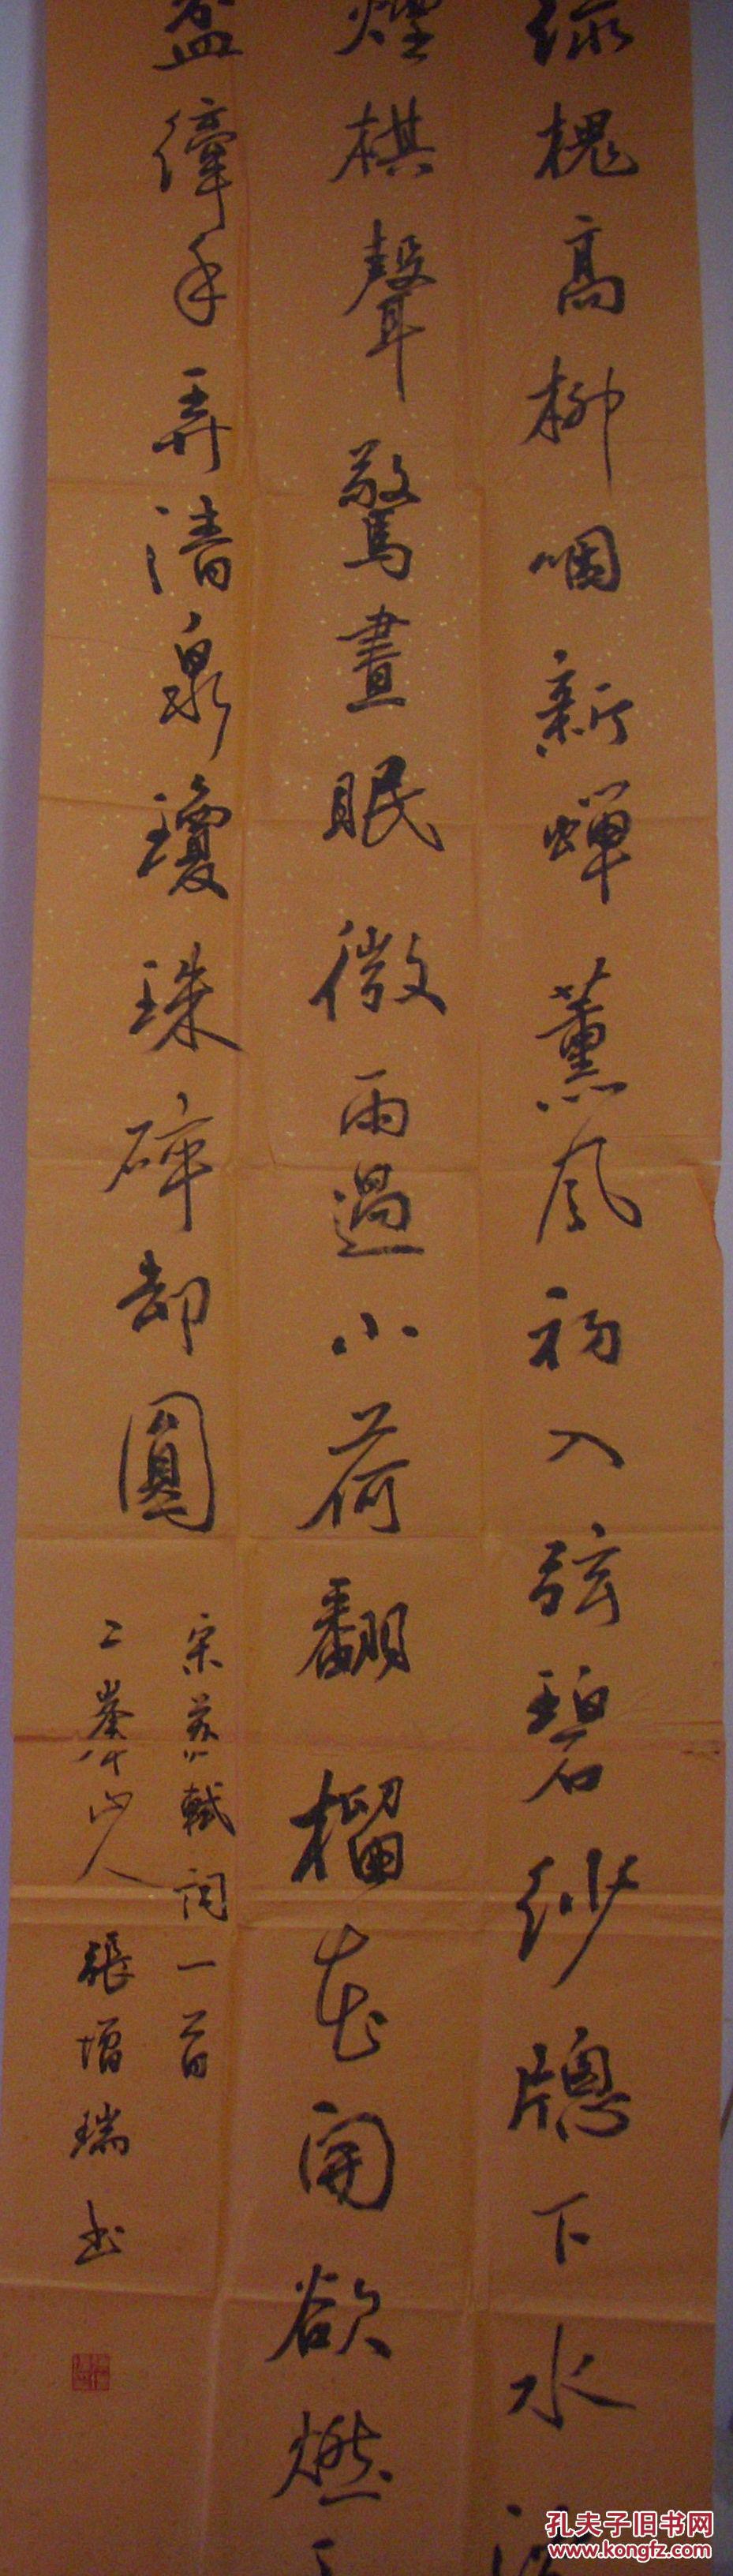 綠槐高柳咽新蟬薰風初入弦碧紗牕下水沈
煙棋聲驚晝眠微雨過小荷翻榴花開欲燃
盆纖手弄清泉瓊珠碎却圓
宋蘇軾詞一首
二峯山人張增瑞書
孔夫子旧书网
www.kongfz.com